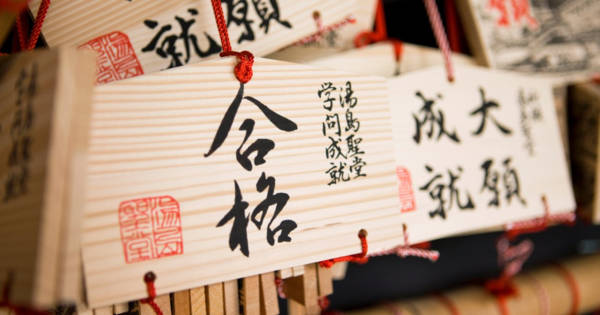 願
就
湯島聖堂
学問成就
合格
湯島
聖堂
大願
成就